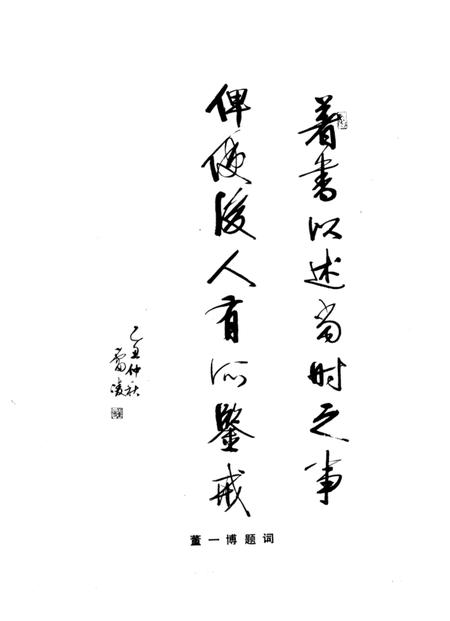 著书以述当时之事
俾使后人有所鉴戒
乙丑仲秋
董一博题词